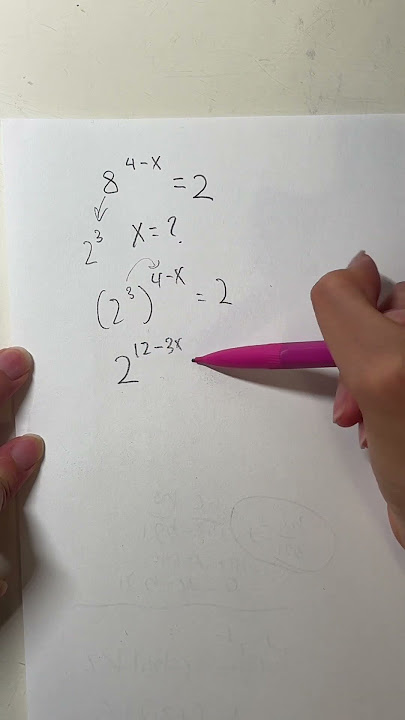 8^(4-x) = 2
2^3 x = ?
(2^3)^(4-x) = 2
2^(12-3x)